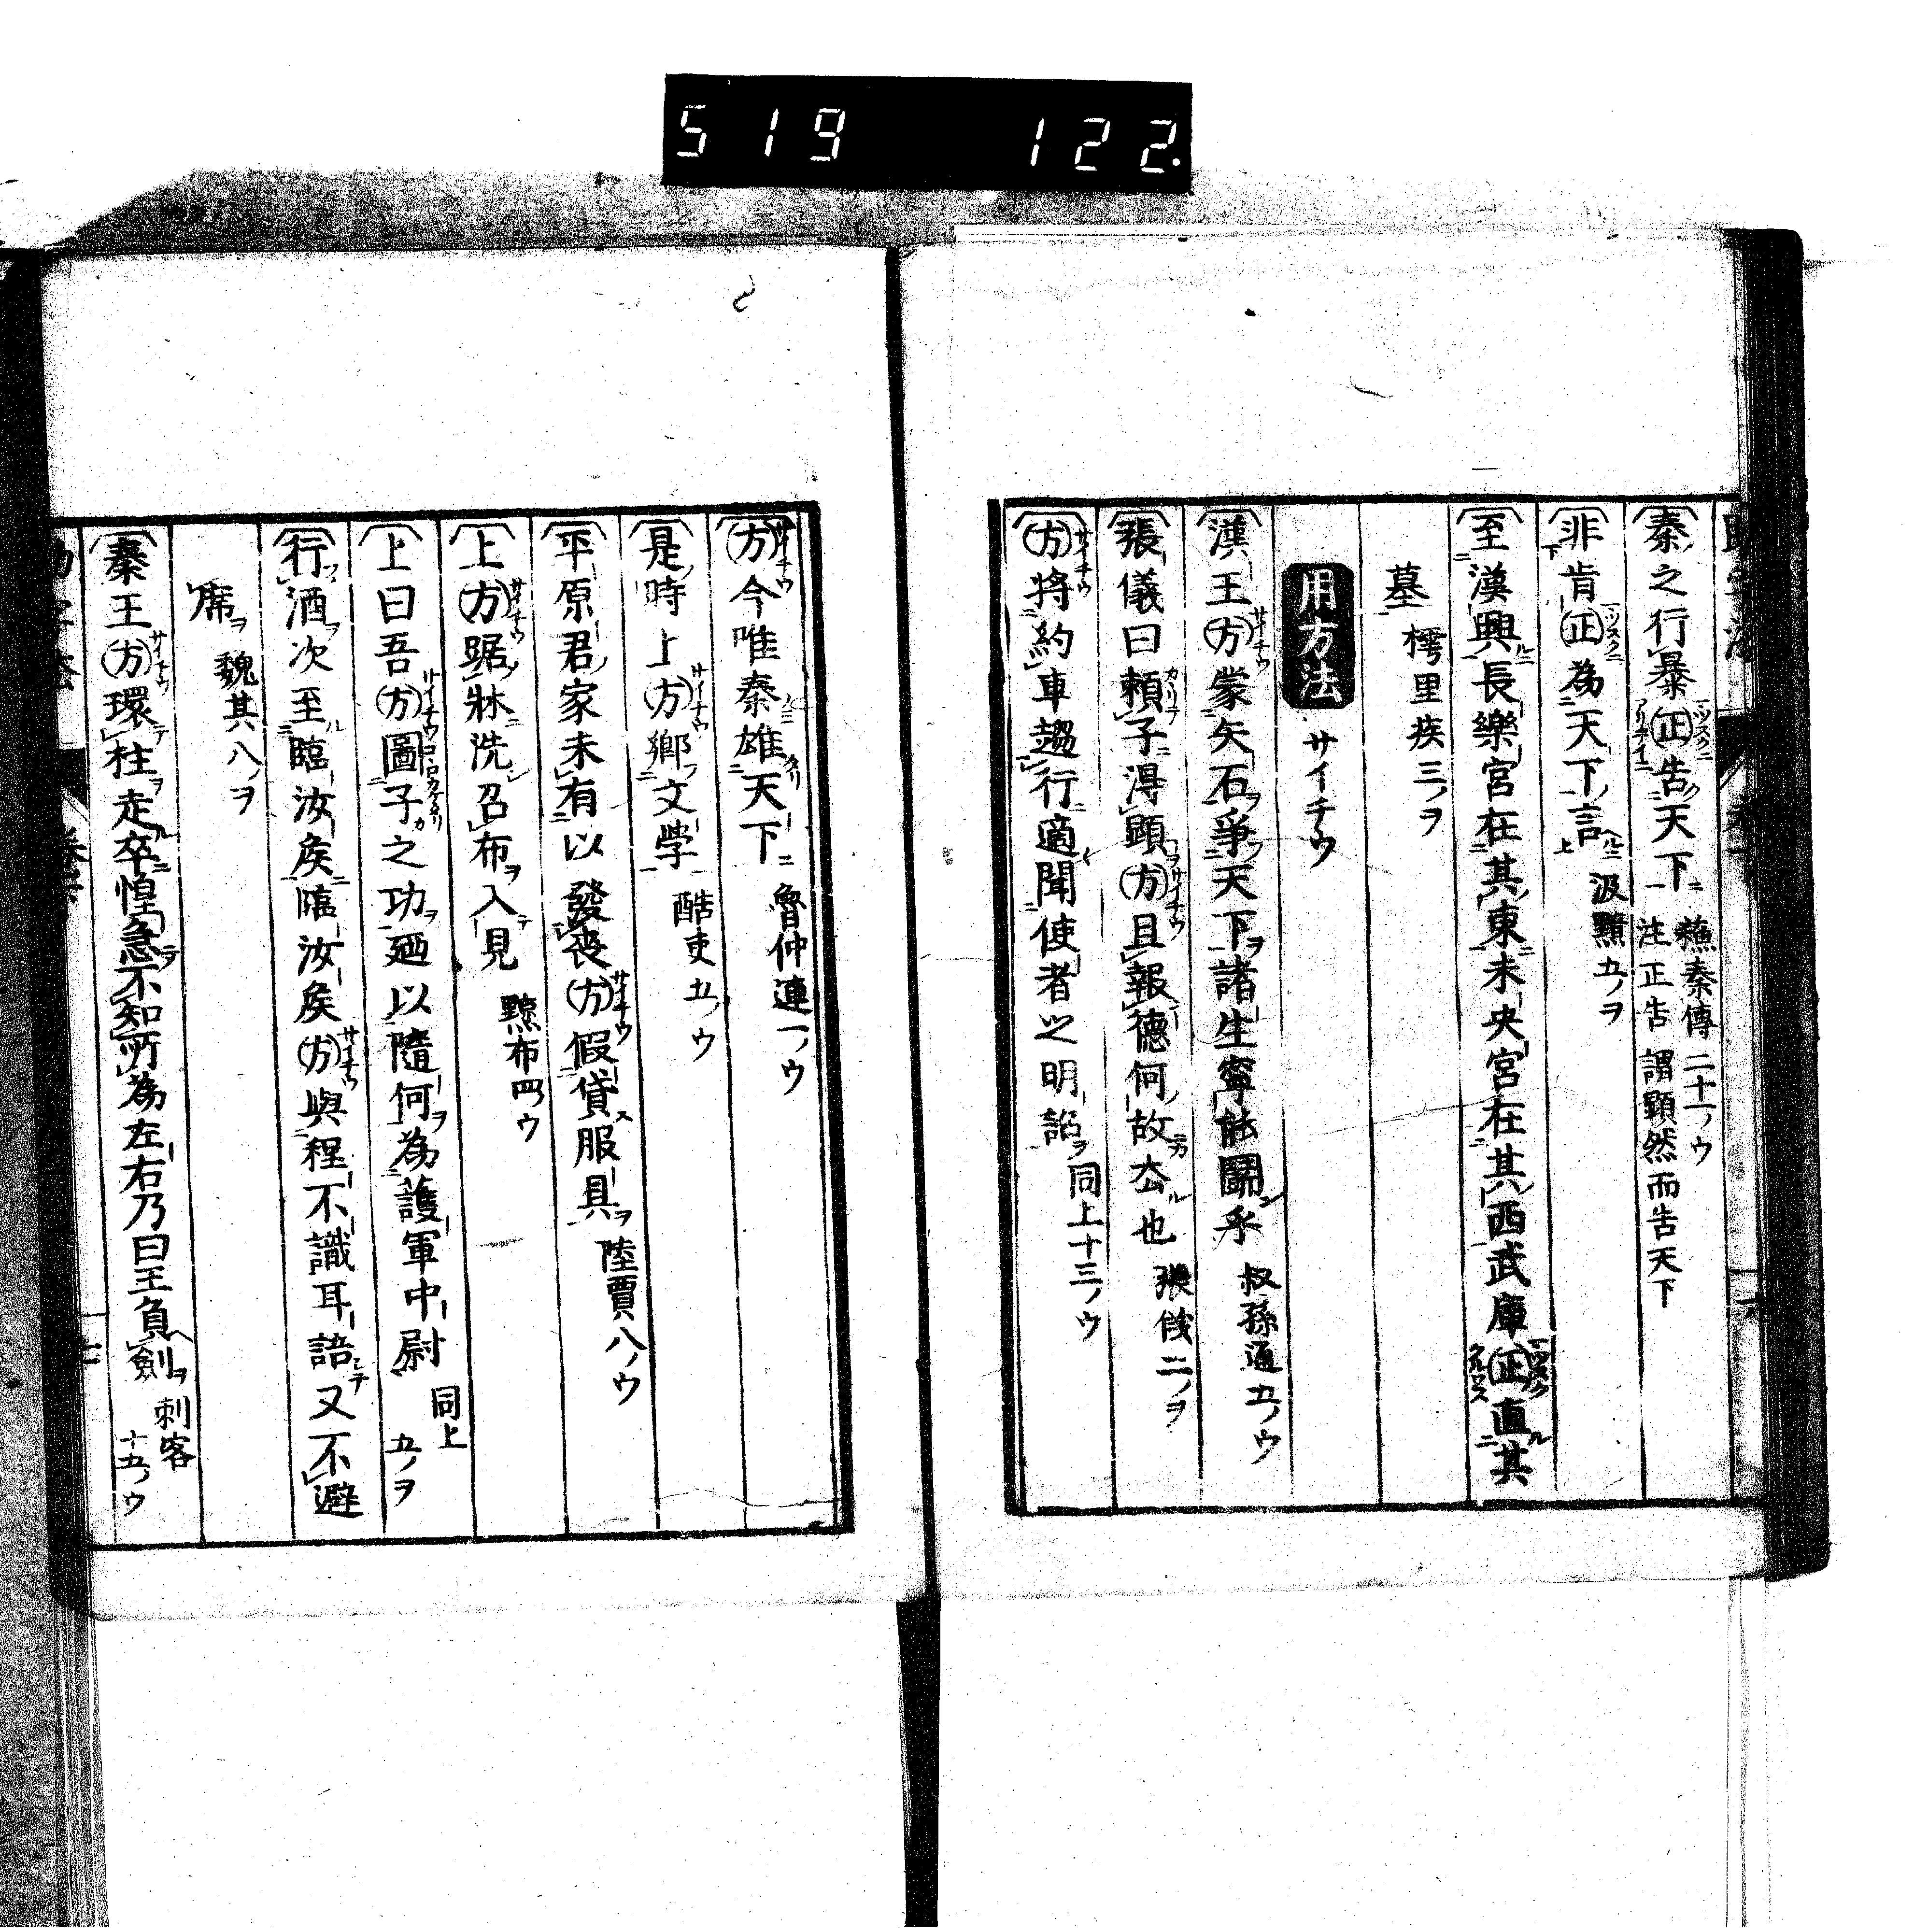 519 122.
秦之行暴㊣告天下 蘓秦傳二十一ノウ
注正告謂顕然而告天下
非肯㊣為天下言 汲黯五ノヲ
至漢興長樂宮在其東未央宮在其西武庫㊣直其
墓 樗里疾三ノヲ
用方法 サイチウ
漢王方蒙矢石爭天下諸生寧能鬪乎 叔孫通五ノウ
張儀曰頼子得顕方且報德何故去也 張儀二ノヲ
方將約車趨行適聞使者之明詔 同上十三ノウ
方今唯秦雄天下 魯仲連一ノウ
是時上方鄉文学 酷吏五ノウ
平原君家未有以發喪方假貸服具 陸賈八ノウ
上方踞牀洗召布入見 黥布四ウ
上曰吾方圖子之功廼以隨何為護軍中尉 同上五ノヲ
行酒次至臨汝矦臨汝矦方與程不識耳語又不避
席 魏其八ノヲ
秦王方環柱走卒惶急不知所為左右乃曰王負劍 刺客十五ノウ